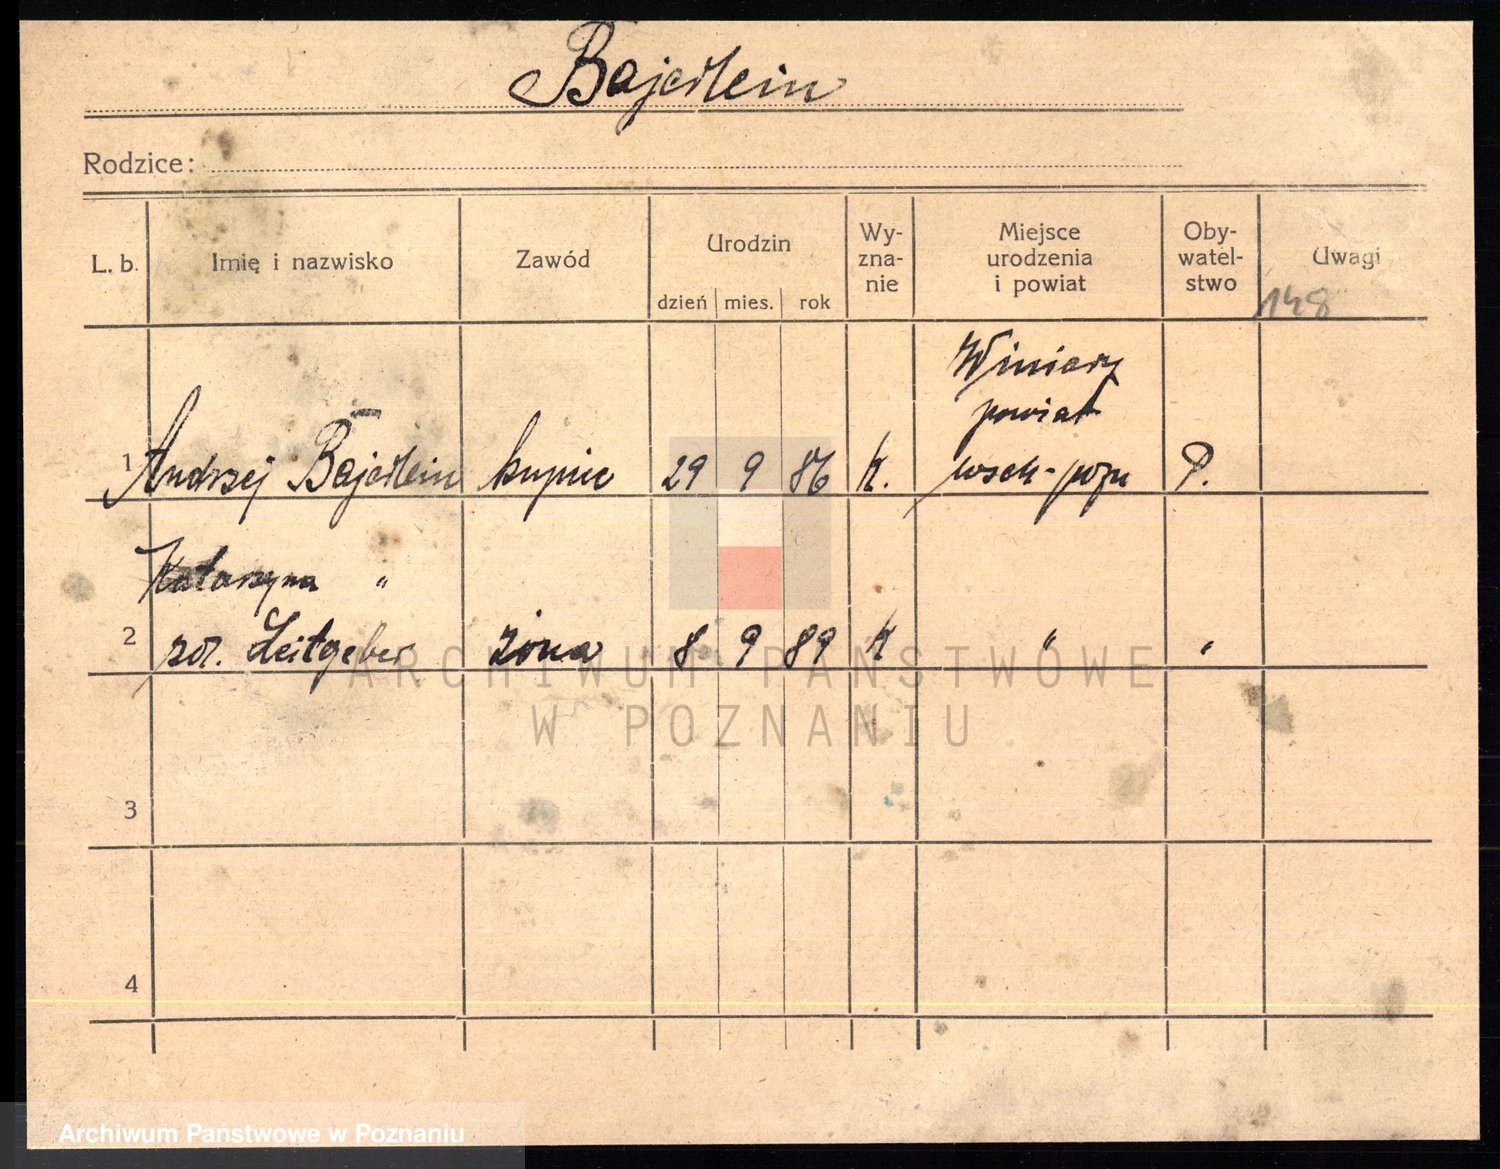 Bajerlein
Rodzice:
L. b.
Imię i nazwisko
Zawód
Urodzin
dzień
mies.
rok
Wy-
zna-
nie
Miejsce
urodzenia
i powiat
Oby-
watel-
stwo
Uwagi
148
1
Andrzej Bajerlein
kupiec
29
9
86
K.
Winiary
powiat
wsch-pozn
P.
2
Katarzyna "
zd. Leitgeber
żona
8
9
89
K
"
"
3
4
ARCHIWUM PAŃSTWOWE
W POZNANIU
Archiwum Państwowe w Poznaniu